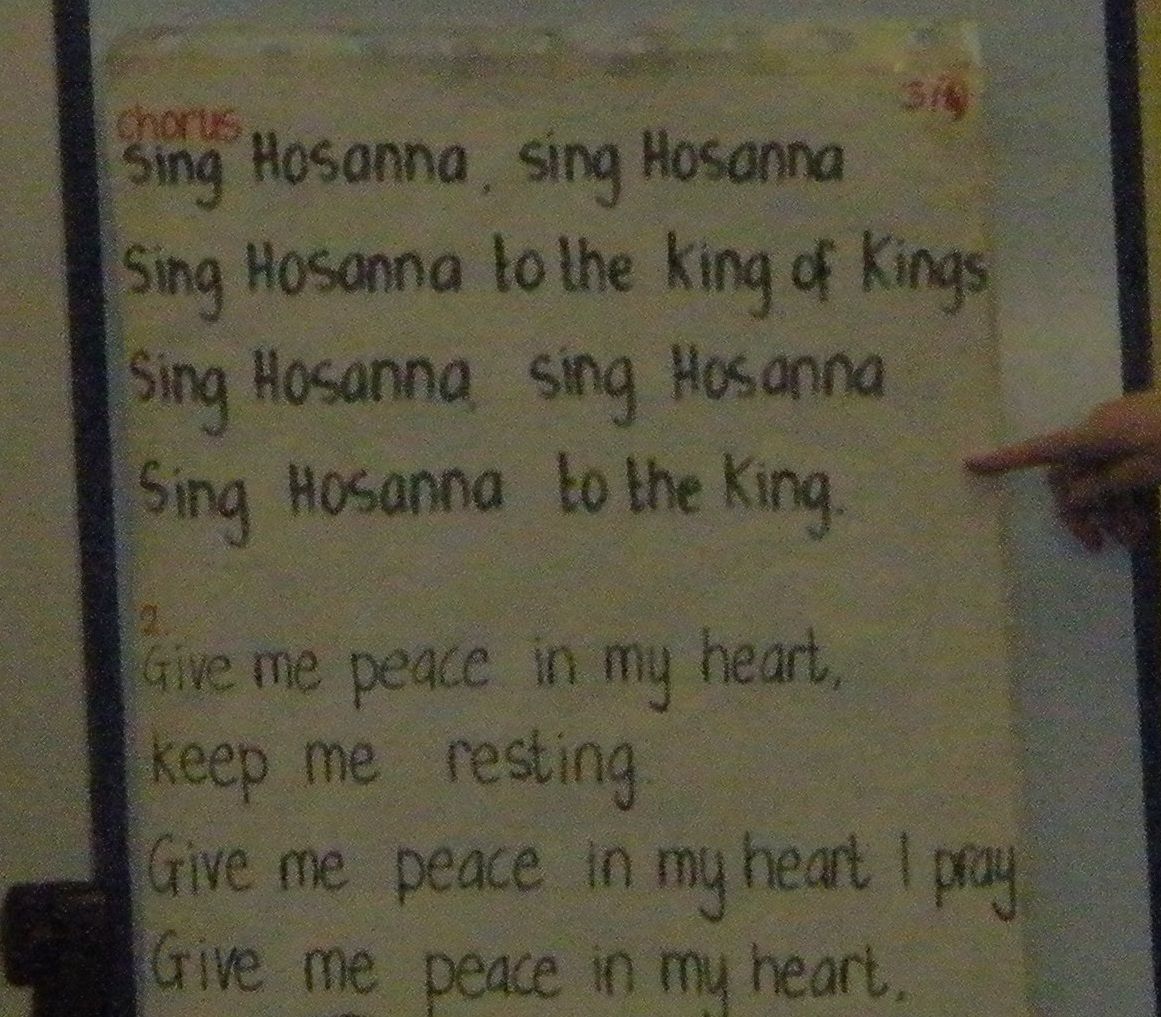 chorus
Sing Hosanna, sing Hosanna
Sing Hosanna to the King of Kings
Sing Hosanna, sing Hosanna
Sing Hosanna to the King.
2.
Give me peace in my heart,
keep me resting
Give me peace in my heart I pray
Give me peace in my heart,